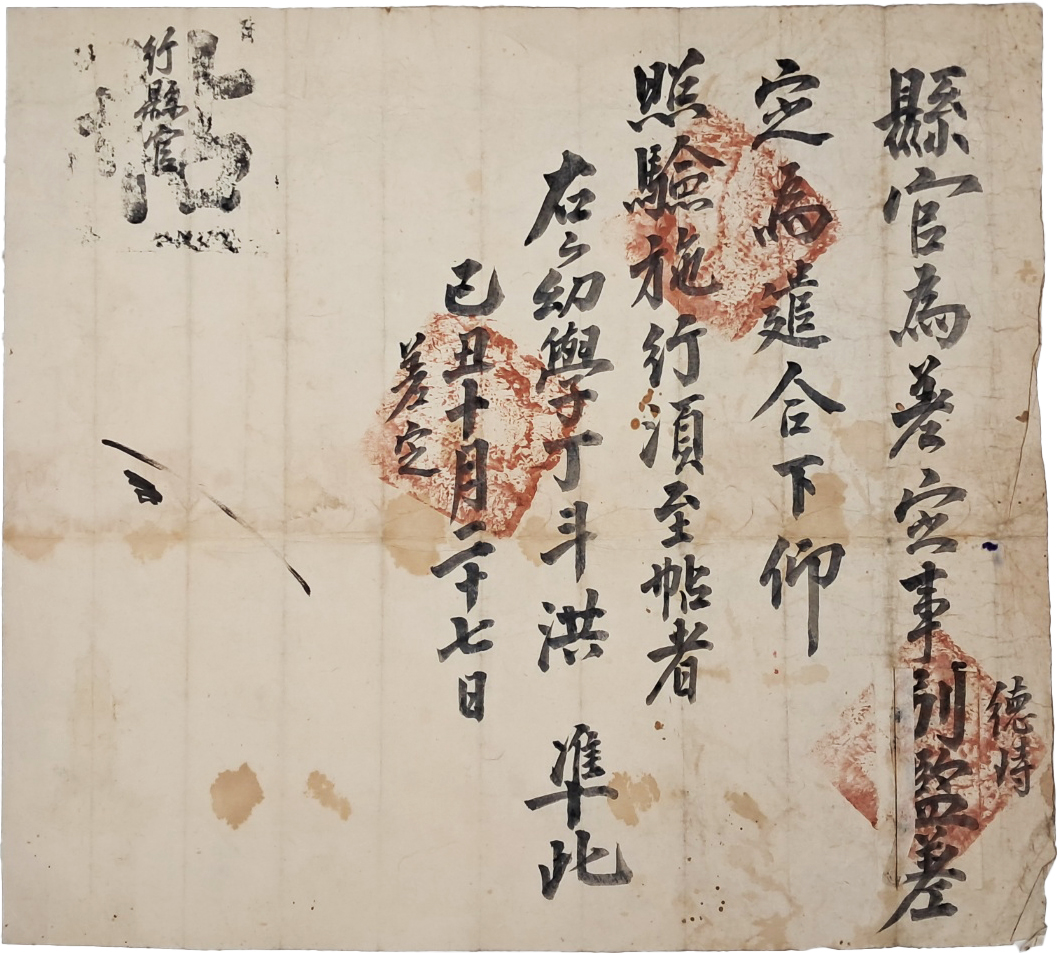 縣官為差定事別監差
德峙
定為遣合下仰
照驗施行須至帖者
右下幼學丁斗洪 準此
己丑十月二十七日
差定
行縣官
帖